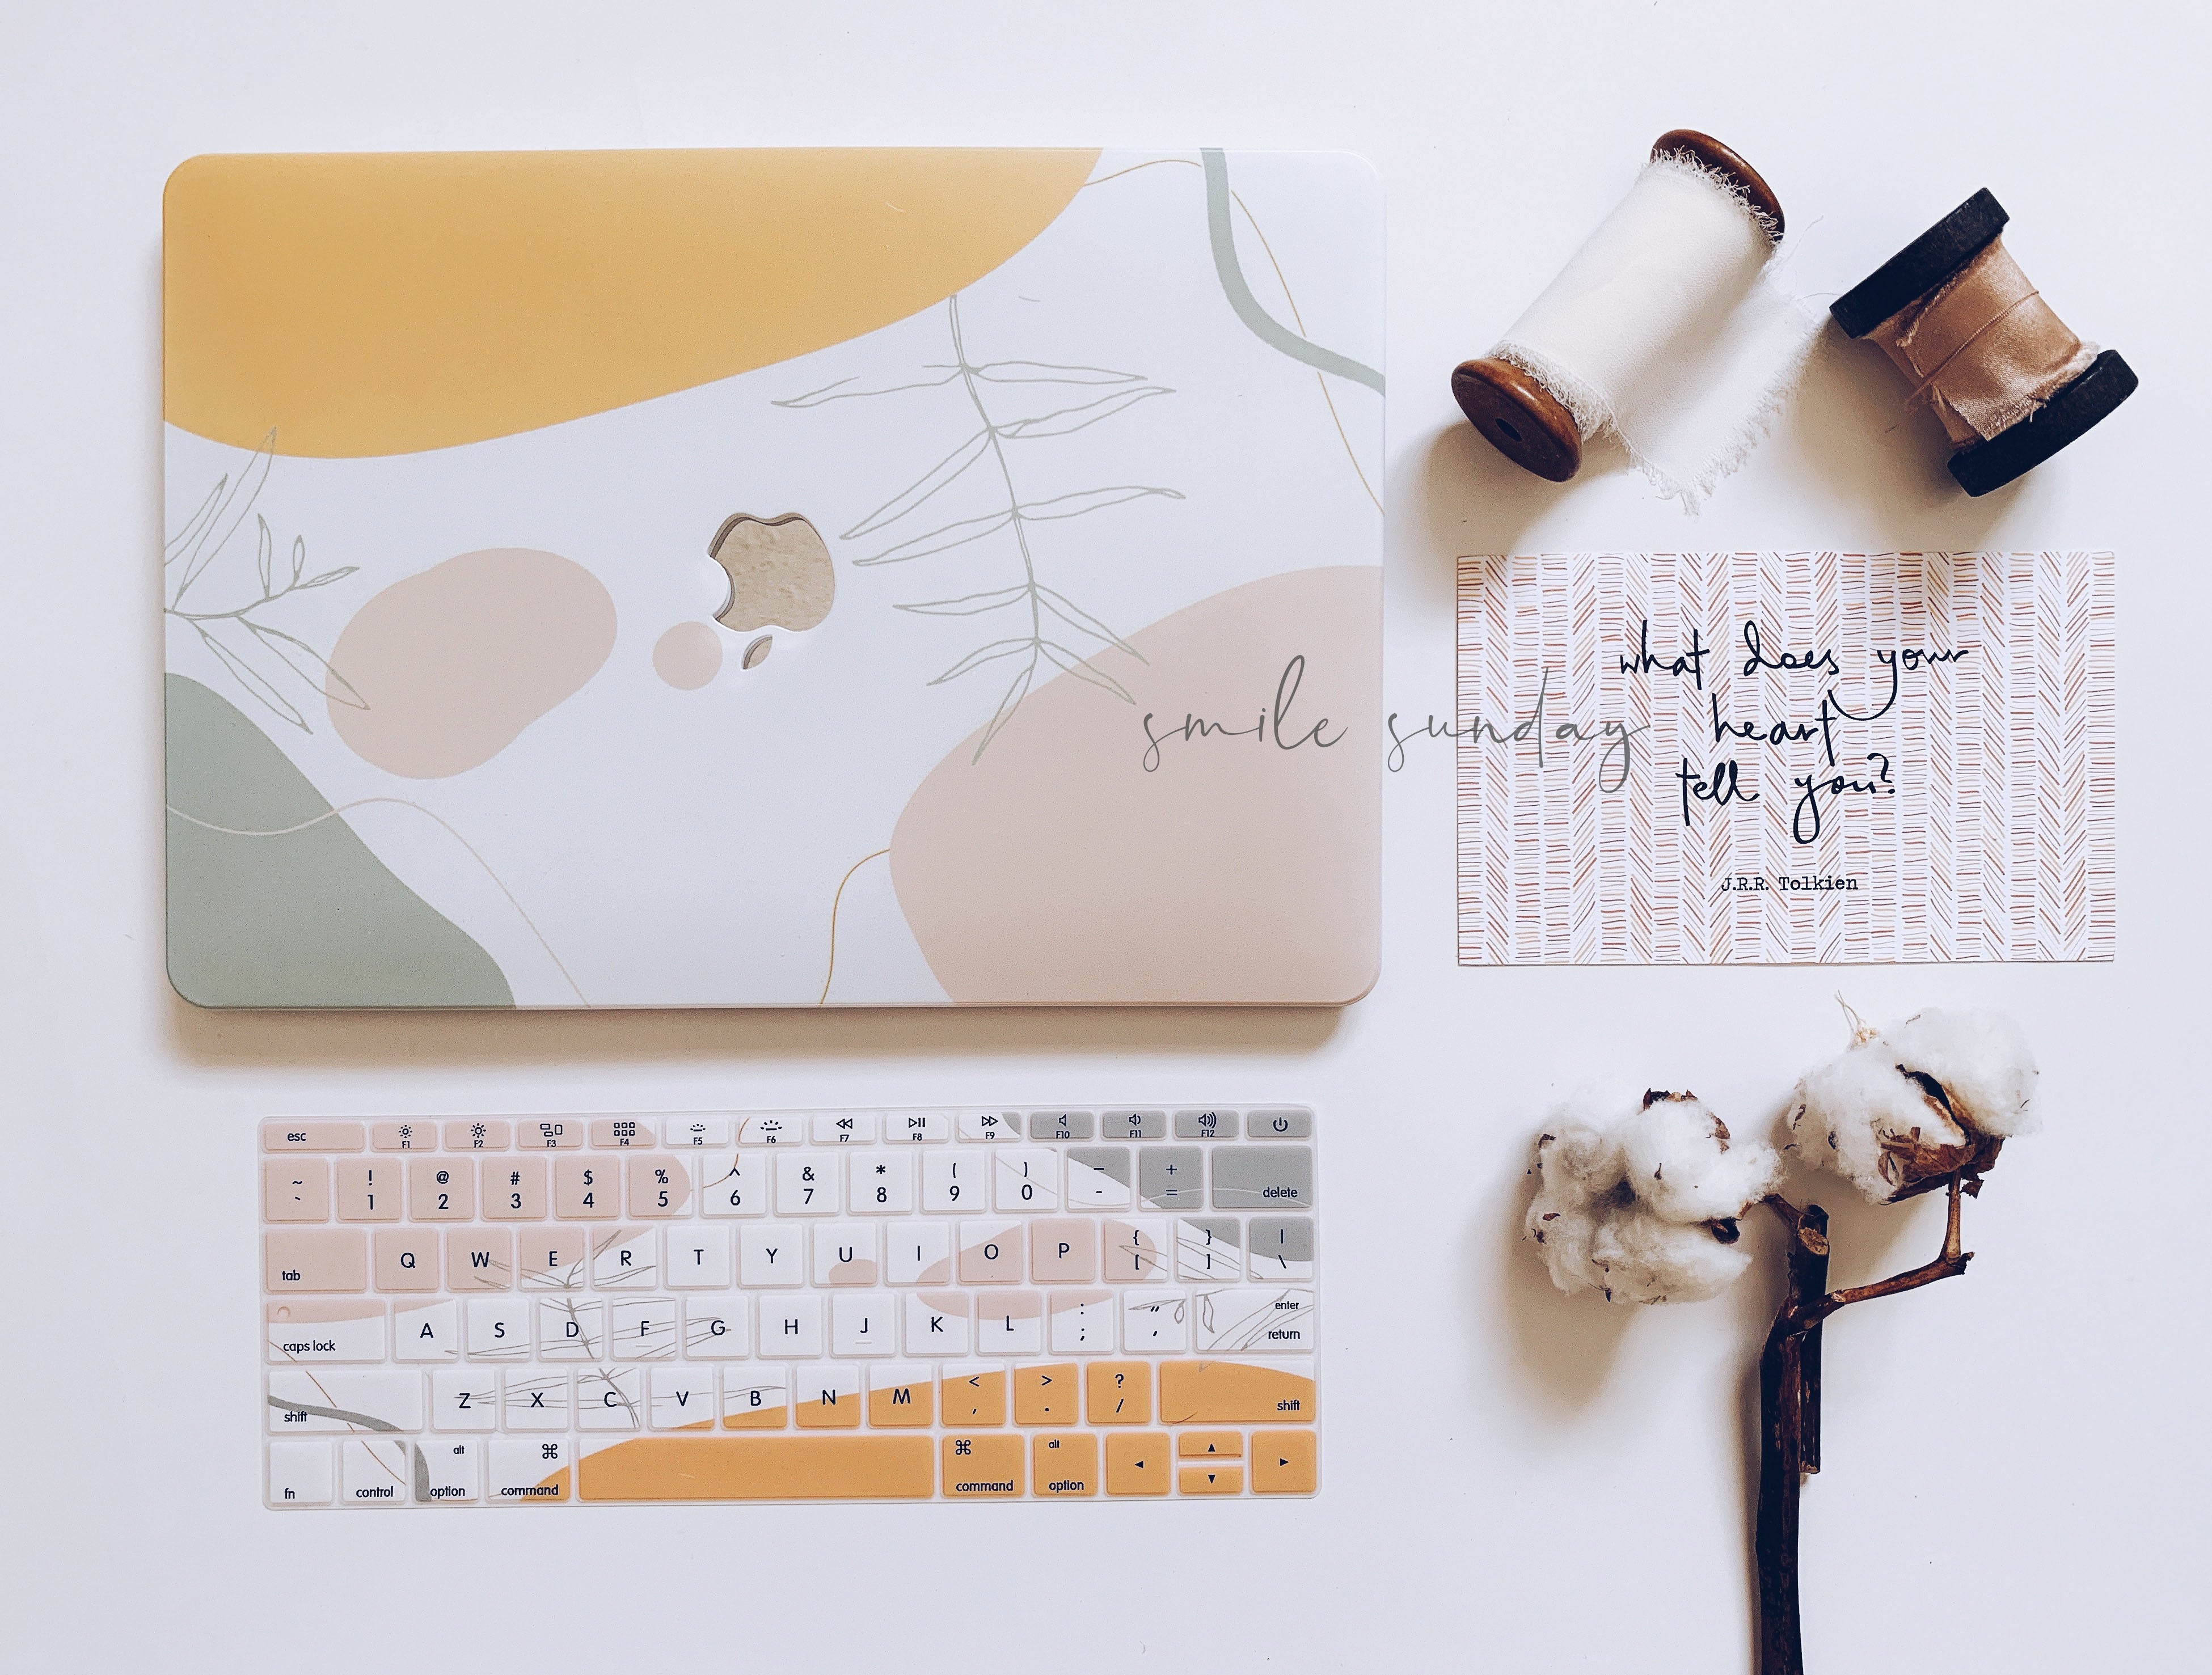 what does your
heart
tell you?
J.R.R. Tolkien
smile sunday
esc F1 F2 F3 F4 F5 F6 F7 F8 F9 F10 F11 F12
~ ! @ # $ % ^ & * ( ) _ +
` 1 2 3 4 5 6 7 8 9 0 - = delete
tab Q W E R T Y U I O P { [ } ] | \
caps lock A S D F G H J K L : ; " ' enter return
shift Z X C V B N M < , > . ? / shift
fn control alt option ⌘ command ⌘ command alt option ◄ ▲ ▼ ►